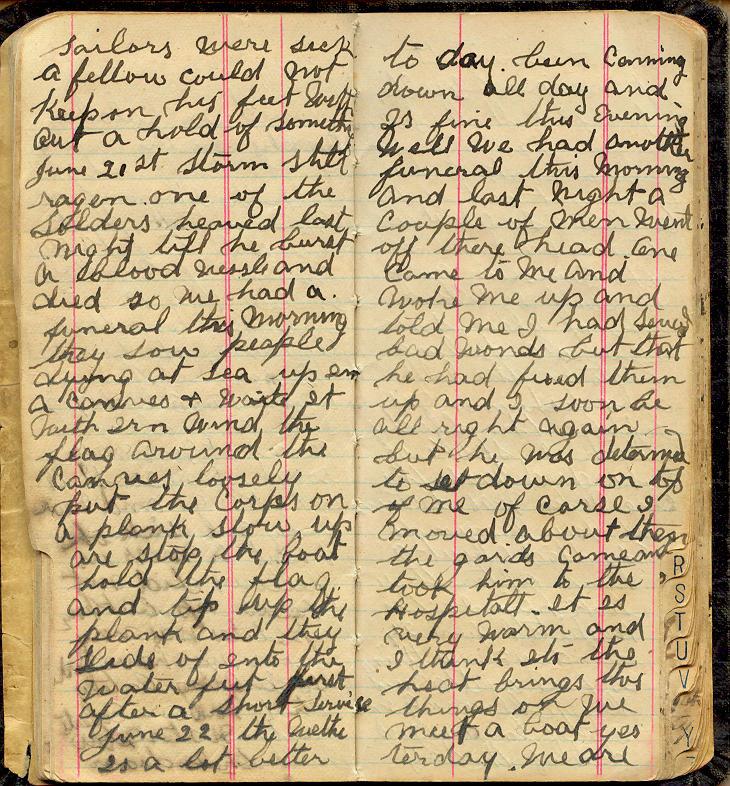 sailors were sick
a fellow could not
keep on his feet with
out a hold of somethi
June 21st storm still
ragen. one of the
Solders heaved last
night till he burst
a blood vessle and
died so we had a.
funeral this Morning
they sow people
dying at sea up en
a canves & waite it
with irn wind the
flag around the
canves loosely
put the Corps on
a plank slow up
are stop the boat
hold the flag
and tip up the
plank and they
slide of into the
water feet first
after a short servise
June 22 the wethe
is a lot better
to day. been Conning
down all day and
is fine this Evening
Well We had another
funeral this Morning
and last night a
Couple of Men Went
off there head. One
Came to Me and
Woke Me up and
told Me I had
bad Wonds but that
he had fixed them
up and I soon be
all right again
but he was determed
to set down on top
of me of carse I
moved about then
the gards Came and
took him to the
Hospitall. it is
very warm and
I think its the
heat brings this
things on We
meet a boat yes
terday. We are
R
S
T
U
V
X